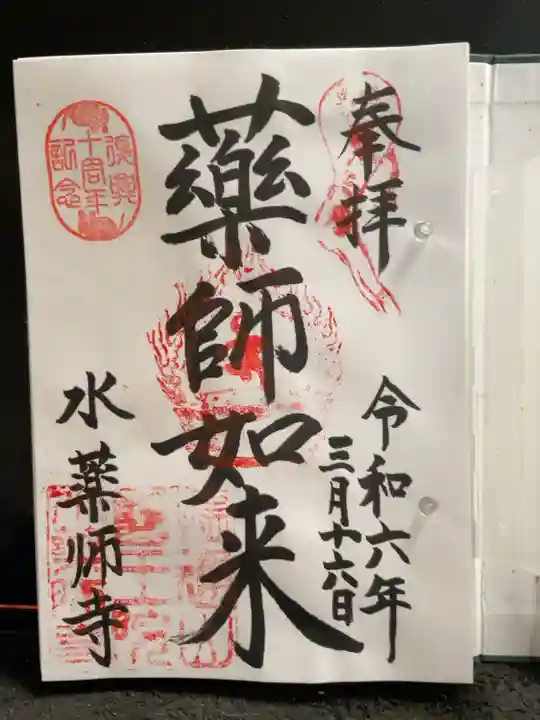 奉拝
令和六年
三月十六日
藥師如来
復興
十周年
記念
水薬師寺